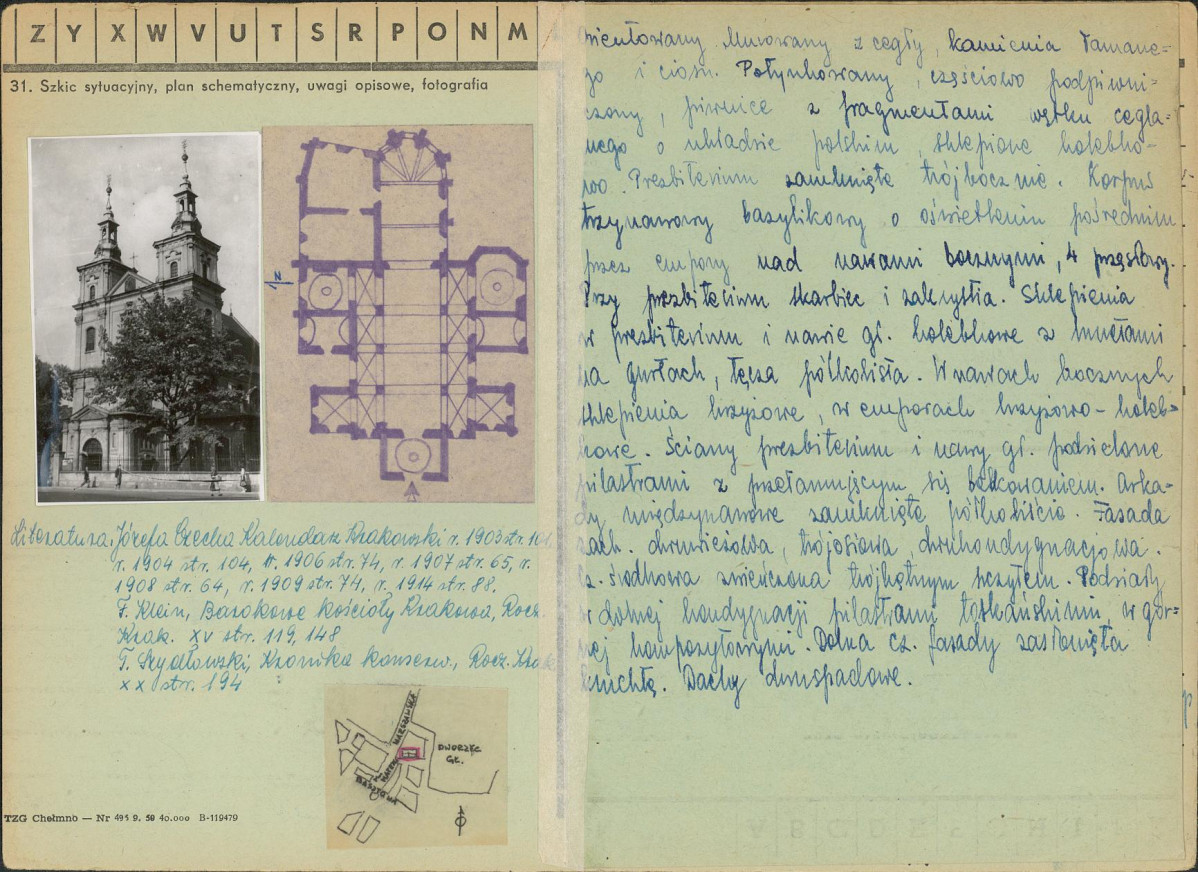 Z Y X W V U T S R P O N M
31. Szkic sytuacyjny, plan schematyczny, uwagi opisowe, fotografia
Literatura: Józefa Czecha Kalendarz Krakowski r. 1903 str. 101
r. 1904 str. 104, r. 1906 str. 74, r. 1907 str. 65, r.
1908 str. 64, r. 1909 str. 74, r. 1914 str. 88.
F. Klein, Barokowe kościoły Krakowa, Rocz.
Krak. XV str. 119, 148
T. Szydłowski, Kronika konserw., Rocz. Krak
XX str. 194
WARSZAWSKA
DWORZEC
GŁ.
BASZTOWA
TZG Chełmno — Nr 495 9. 59 40.000 B-119479
orientowany. Murowany z cegły, kamienia łamane=
go i cios. Potynkowany, częściowo podpiwni=
czony, piwnice z fragmentami wątku cegla=
nego o układzie polskim, sklepione kolebko-
wo. Prezbiterium zamknięte trójbocznie. Korpus
trzynawowy bazylikowy o oświetleniu pośrednim
przez empory nad nawami bocznymi, 4 przęsłowy.
Przy prezbiterium skarbiec i zakrystia. Sklepienia
w prezbiterium i nawie gł. kolebkowe z lunetami
na gurtach, tęcza półkolista. W nawach bocznych
sklepienia krzyżowe, w emporach krzyżowo-koleb=
kowe. Ściany prezbiterium i nawy gł. podzielone
pilastrami z przełamującym się belkowaniem. Arka=
dy międzynawowe zamknięte półkoliście. Fasada
zach. dwuwieżowa, trójosiowa, dwukondygnacjowa.
cz. środkowa zwieńczona trójkątnym szczytem. Podziały
w dolnej kondygnacji pilastrami toskańskimi, w gór=
nej kompozytowymi. Dolna cz. fasady zasłonięta
kruchtą. Dachy dwuspadowe.